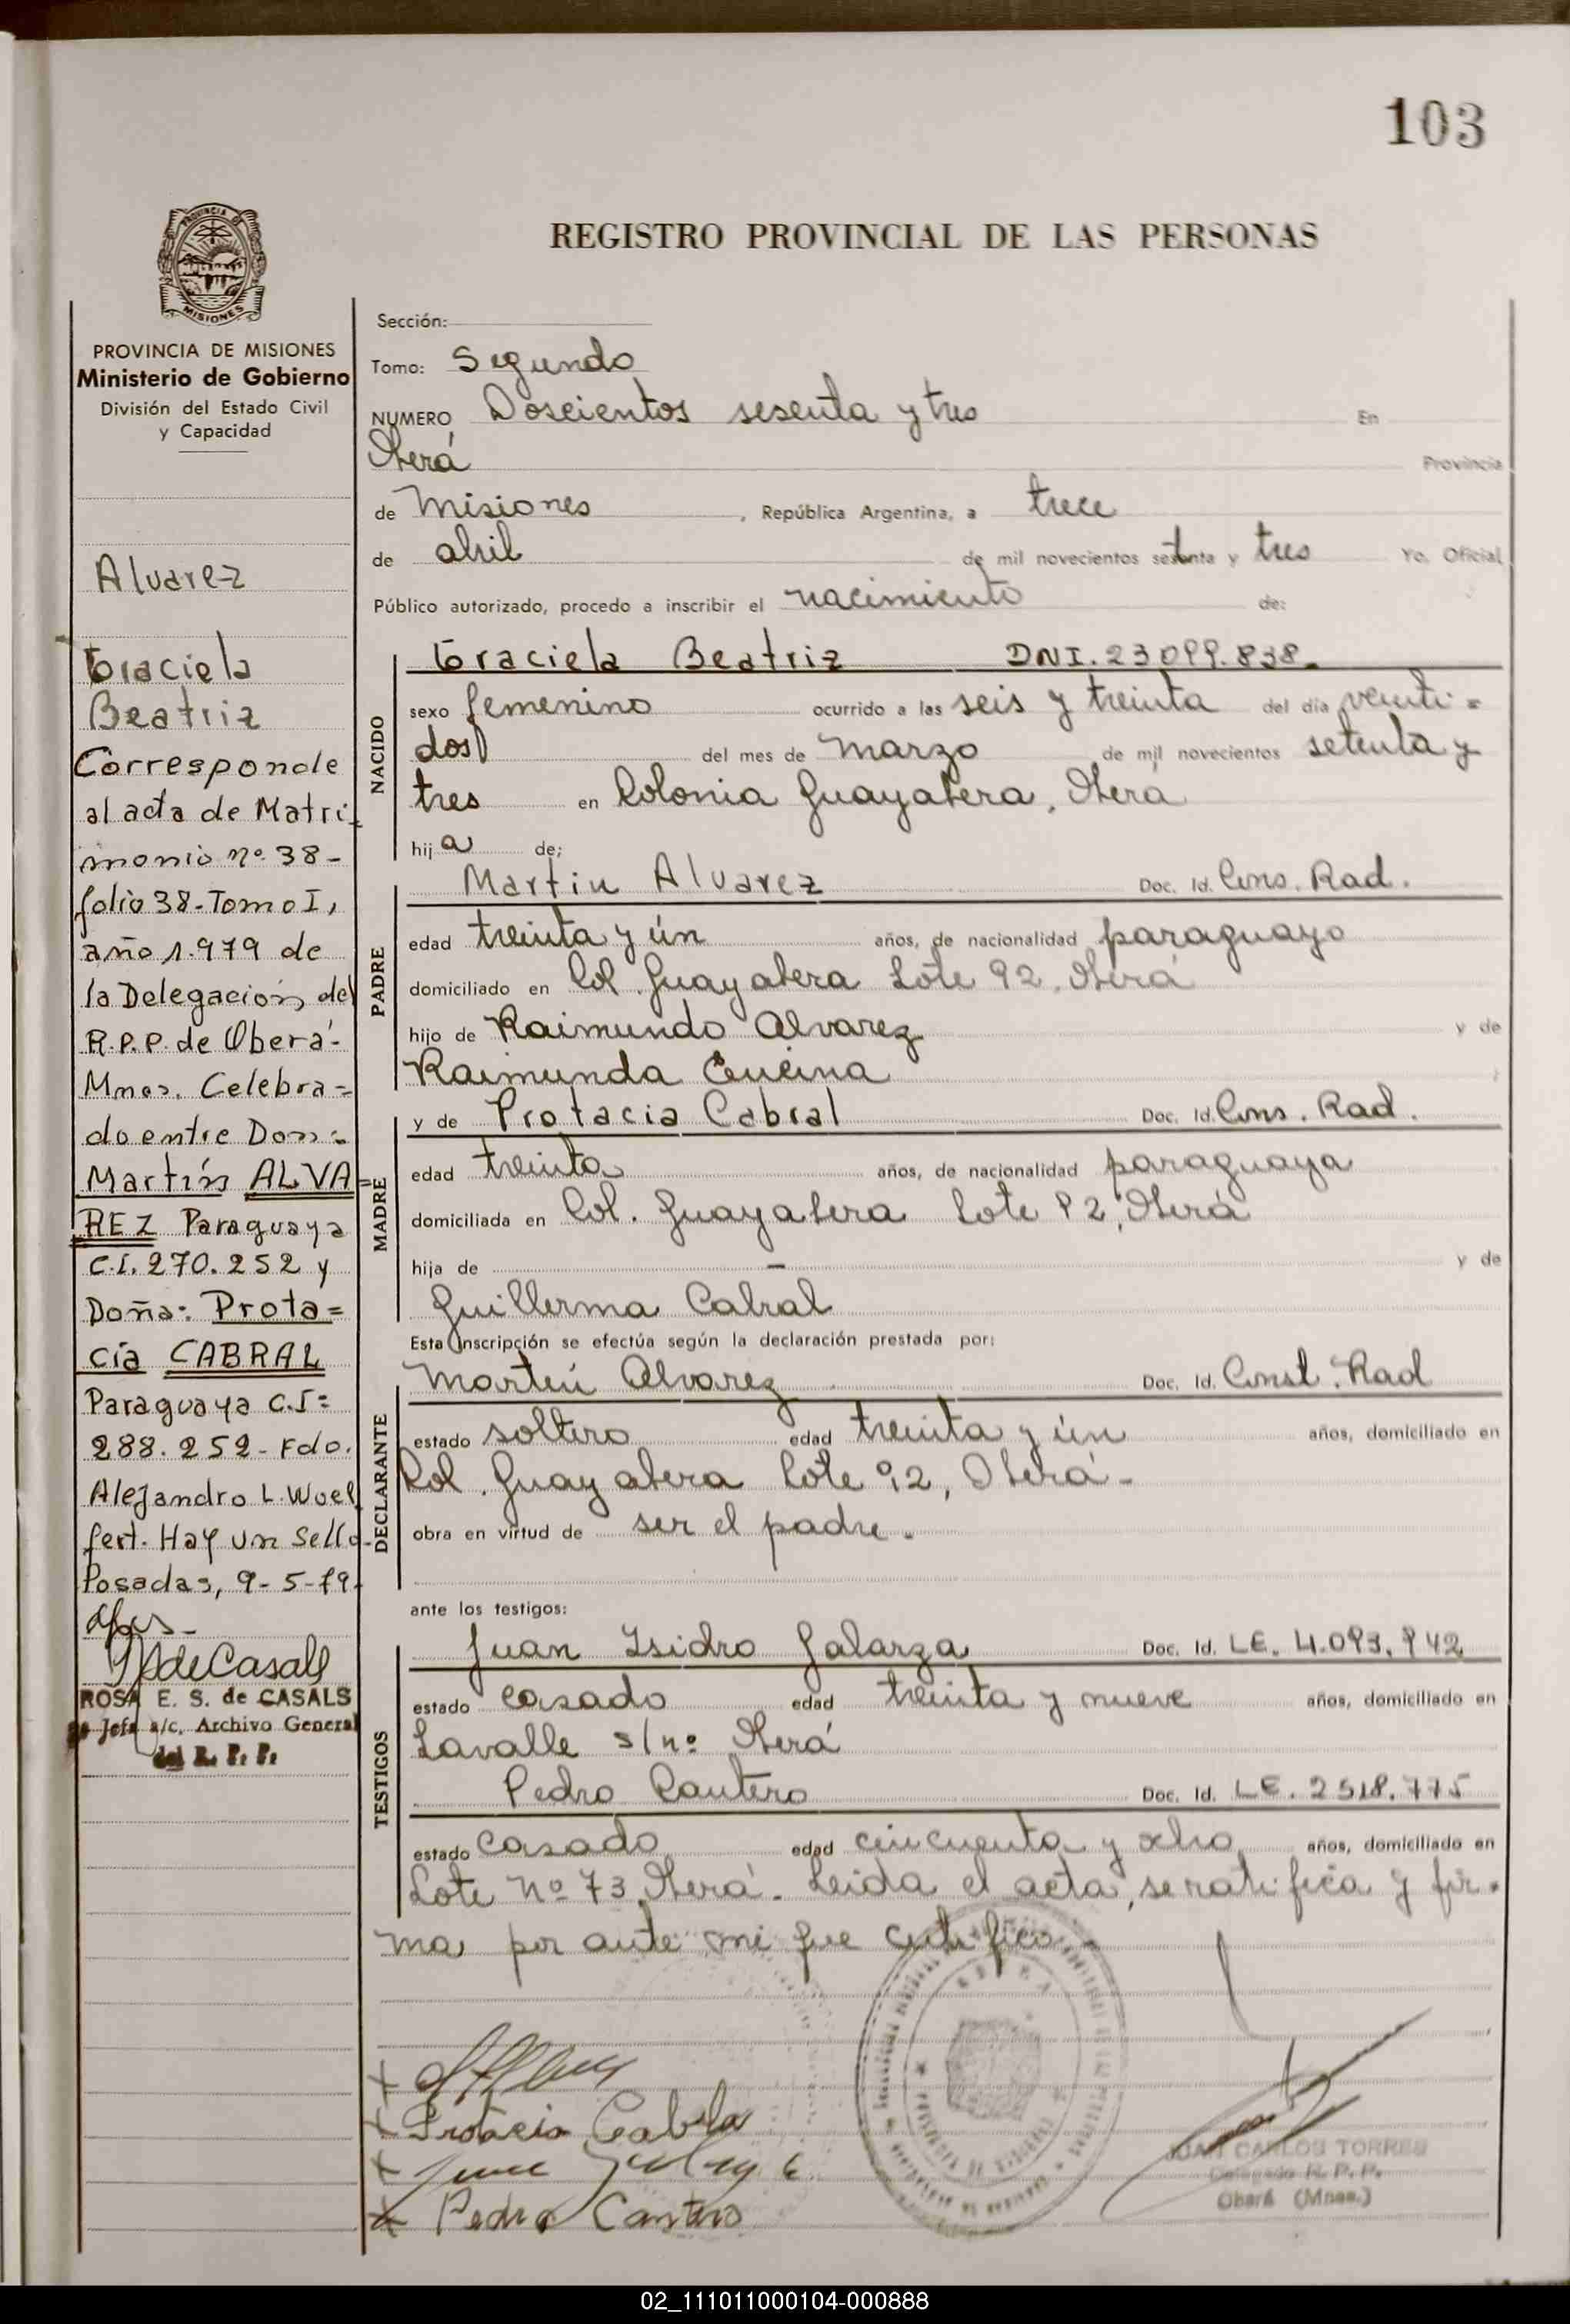 103
REGISTRO PROVINCIAL DE LAS PERSONAS
PROVINCIA DE MISIONES
Ministerio de Gobierno
División del Estado Civil
y Capacidad
Alvarez
Graciela
Beatriz
Corresponde
al acta de Matri-
monio nº 38-
folio 38-Tomo I,
año 1.979 de
la Delegación del
R.P.P. de Oberá-
Mnes. Celebra=
do entre Don:
Martín ALVA=
REZ Paraguaya
C.I. 270.252 y
Doña: Prota=
cia CABRAL
Paraguaya C.I=
288.252- Fdo.
Alejandro L. Woel
fert. Hay un Sello-
Posadas, 9-5-79.
ROSA E. S. de CASALS
Jefa a/c. Archivo General
del R. P. P.
Sección:
Tomo: Segundo
NUMERO Doscientos sesenta y tres En
Oberá Provincia
de Misiones, República Argentina, a trece
de abril de mil novecientos setenta y tres Yo. Oficial
Público autorizado, procedo a inscribir el nacimiento de:
NACIDO
Graciela Beatriz DNI. 23099.838.
sexo femenino ocurrido a las seis y treinta del día veinti=
dos del mes de marzo de mil novecientos setenta y
tres en Colonia Guayabera, Oberá
hija de;
PADRE
Martin Alvarez Doc. Id. Cons. Rad.
edad treinta y ún años, de nacionalidad paraguayo
domiciliado en Col. Guayabera Lote 92, Oberá
hijo de Raimundo Alvarez y de
Raimunda Encina
MADRE
y de Protacia Cabral Doc. Id. Cons. Rad.
edad treinta años, de nacionalidad paraguaya
domiciliada en Col. Guayabera Lote 92, Oberá
hija de — y de
Guillerma Cabral
Esta inscripción se efectúa según la declaración prestada por:
DECLARANTE
Martín Alvarez Doc. Id. Const. Rad
estado soltero edad treinta y ún años, domiciliado en
Col. Guayabera Lote 92, Oberá-
obra en virtud de ser el padre.
ante los testigos:
TESTIGOS
Juan Isidro Galarza Doc. Id. LE. 4.093.942
estado casado edad treinta y nueve años, domiciliado en
Lavalle s/nº Oberá
Pedro Cantero Doc. Id. LE. 2518.775
estado casado edad cincuenta y ocho años, domiciliado en
Lote Nº 73, Oberá. Leida el acta, se ratifica y fir-
ma por ante mi que certifico-
Protacia Cabral
Pedro Cantero
JUAN CARLOS TORRES
Delegado R. P. P.
Oberá (Mnes.)
02_111011000104-000888